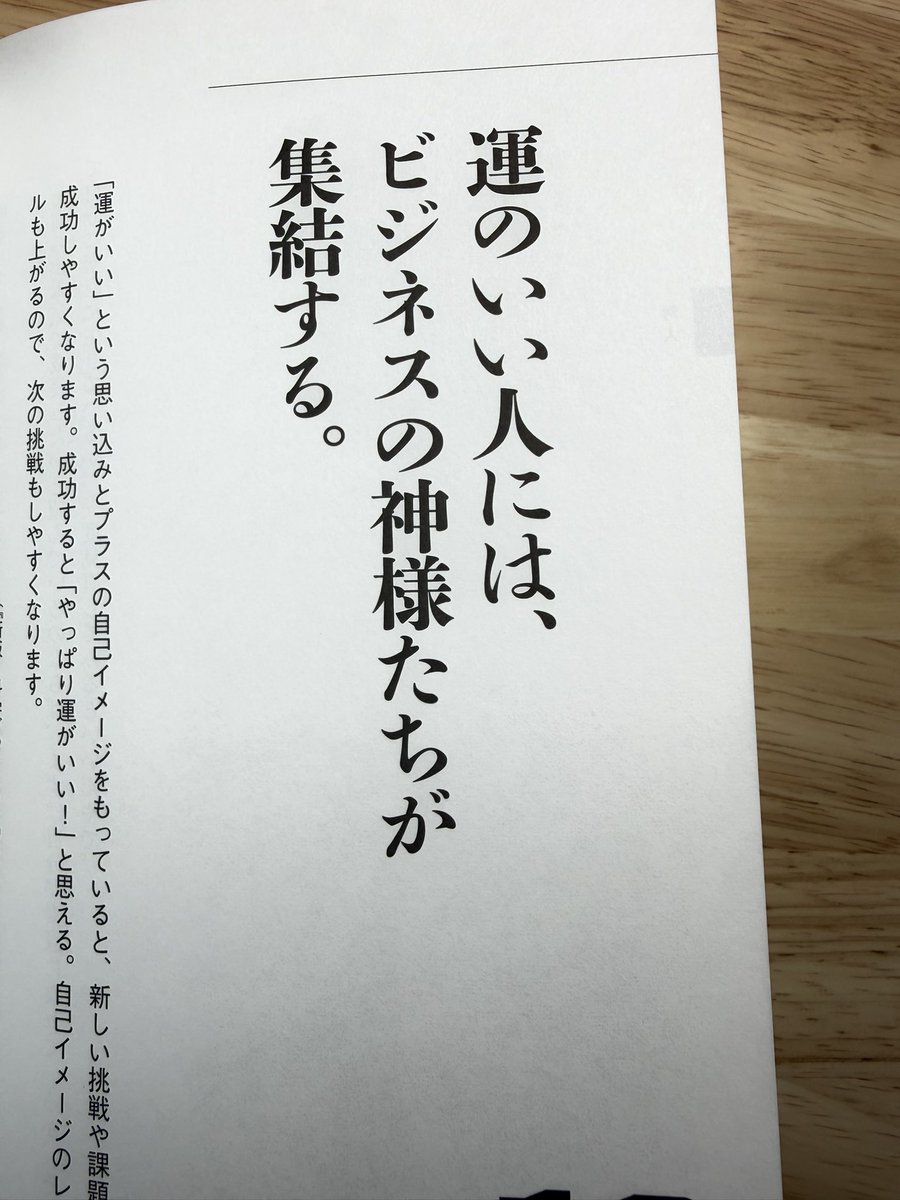 運のいい人には、
ビジネスの神様たちが
集結する。
「運がいい」という思い込みとプラスの自己イメージをもっていると、新しい挑戦や課題
成功しやすくなります。成功すると「やっぱり運がいい！」と思える。自己イメージのレ
ルも上がるので、次の挑戦もしやすくなります。